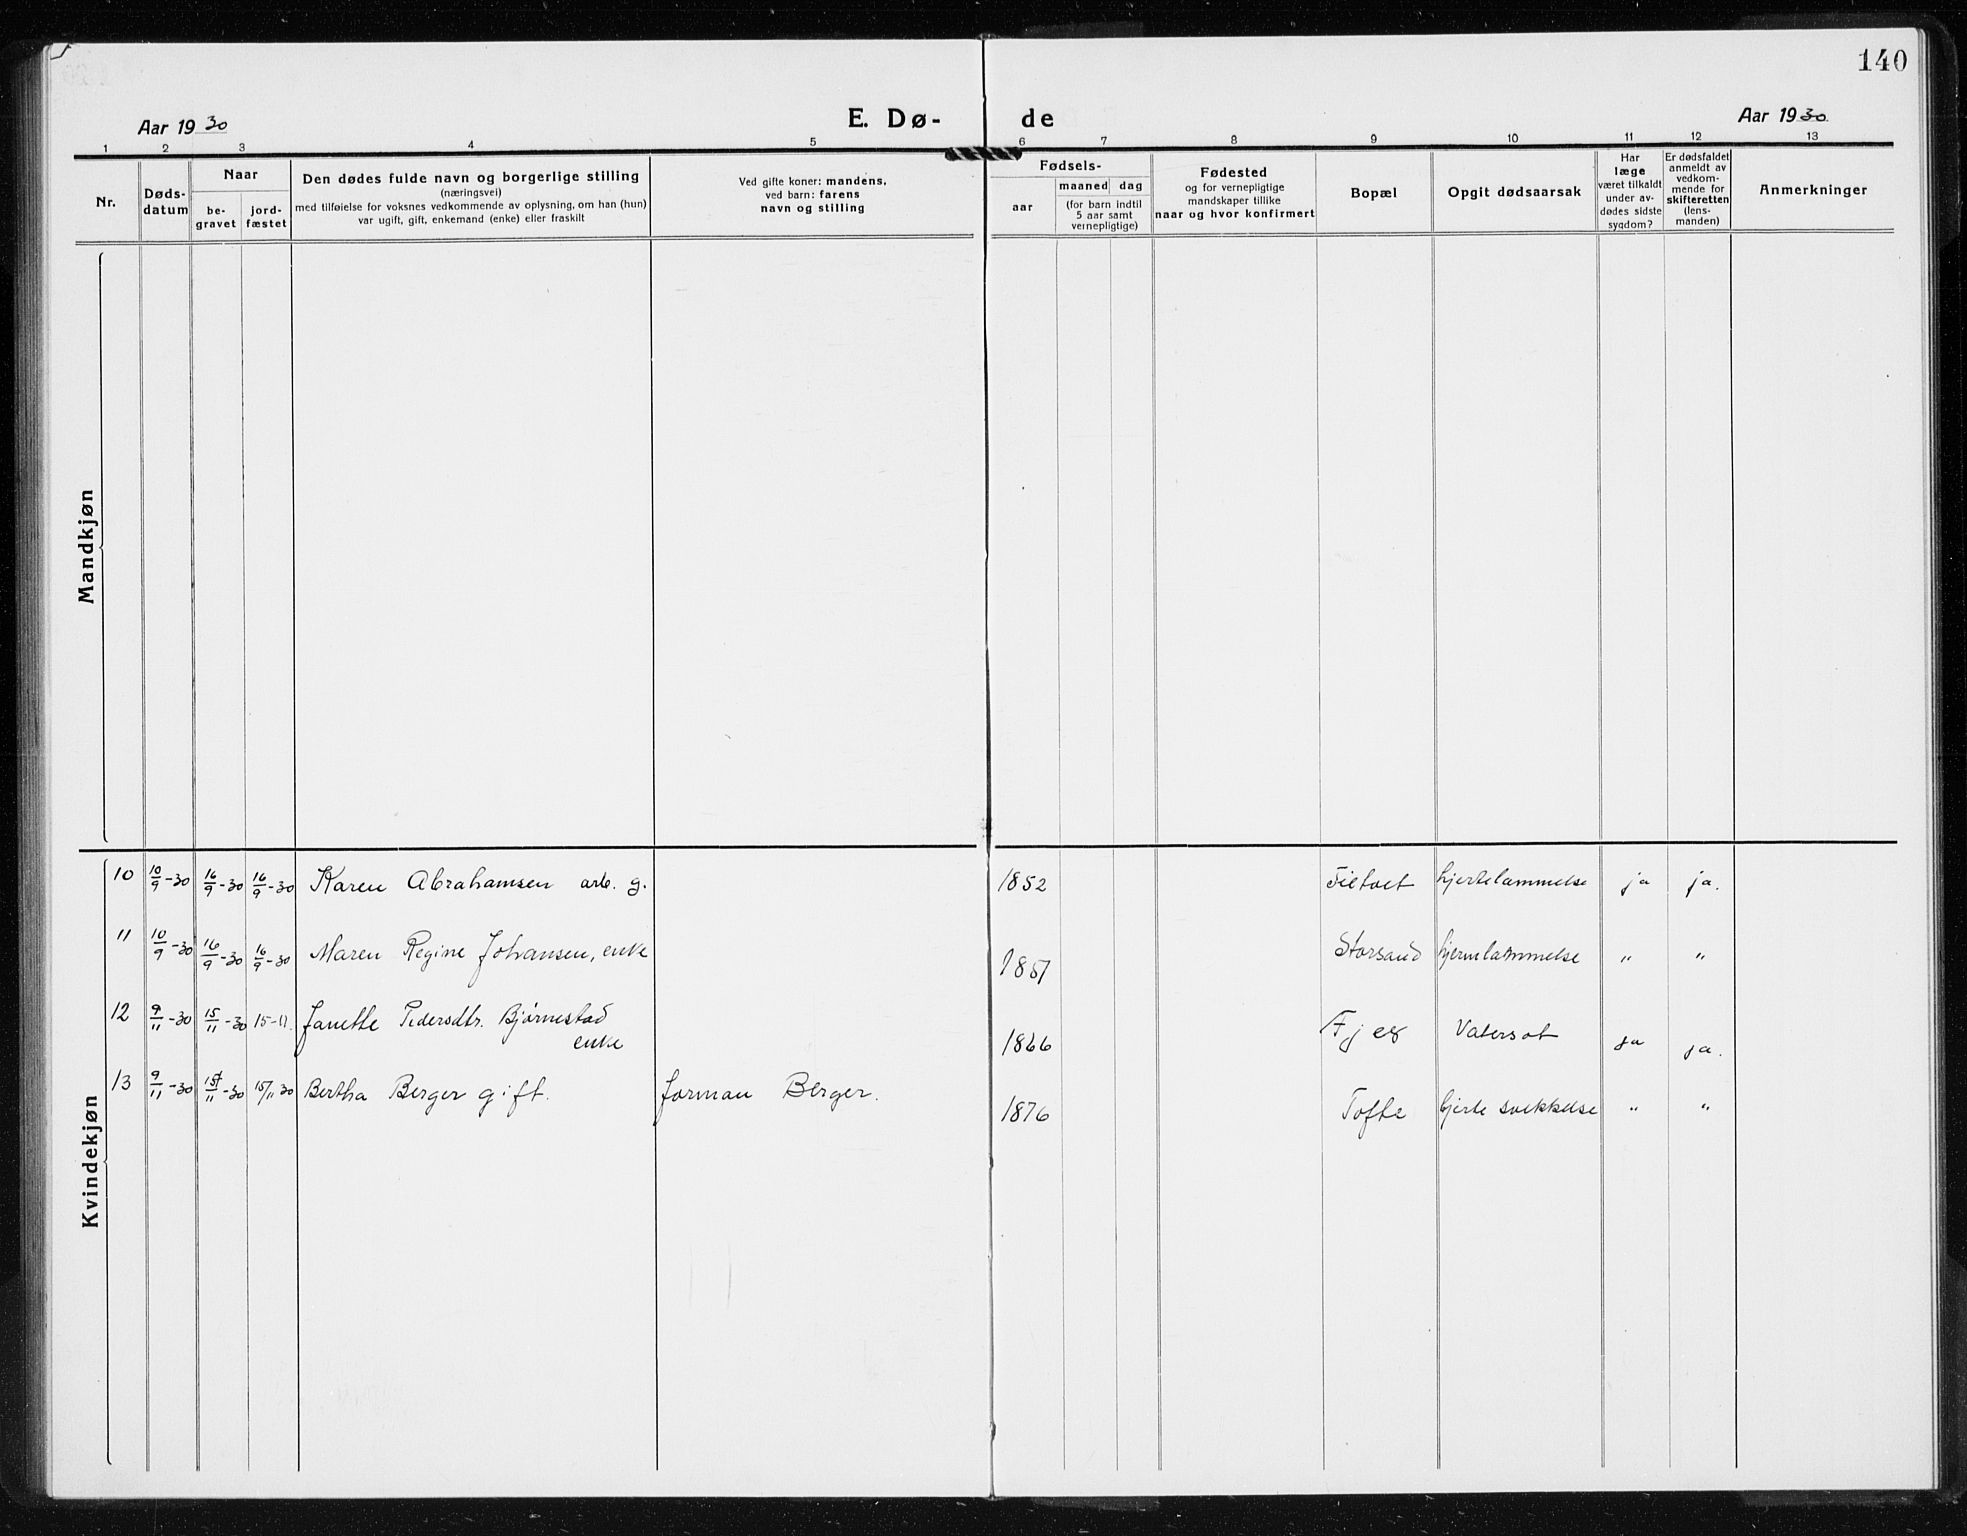 140
Aar 1930 E. Dø- de Aar 1930.
1 2 3 4 5 6 7 8 9 10 11 12 13
Nr.
Døds-
datum
Naar
be-
gravet
jord-
fæstet
Den dødes fulde navn og borgerlige stilling
(næringsvei)
med tilføielse for voksnes vedkommende av oplysning, om han (hun)
var ugift, gift, enkemand (enke) eller fraskilt
Ved gifte koner: mandens,
ved barn: farens
navn og stilling
Fødsels-
aar
maaned dag
(for barn indtil
5 aar samt
vernepligtige)
Fødested
og for vernepligtige
mandskaper tillike
naar og hvor konfirmert
Bopæl
Opgit dødsaarsak
Har
læge
været tilkaldt
under av-
dødes sidste
sygdom?
Er dødsfaldet
anmeldt av
vedkom-
mende for
skifteretten
(lens-
manden)
Anmerkninger
Mandkjøn
Kvindekjøn
10 10/9-30 16/9-30 16/9-30 Karen Abrahamsen arb. g. 1852 hjertelammelse ja ja.
11 10/9-30 16/9-30 16/9-30 Maren Regine Johansen, enke 1851 Storsand hjernelammelse " "
12 9/11-30 15/11-30 15-11. Janette Pedersdtr. Bjørnestad
enke 1866 Vatersot ja ja.
13 9/11-30 15/11-30 15/11 30 Bertha Berger gift. Forman Berger. 1876 Tofte hjerte svekkelse " "